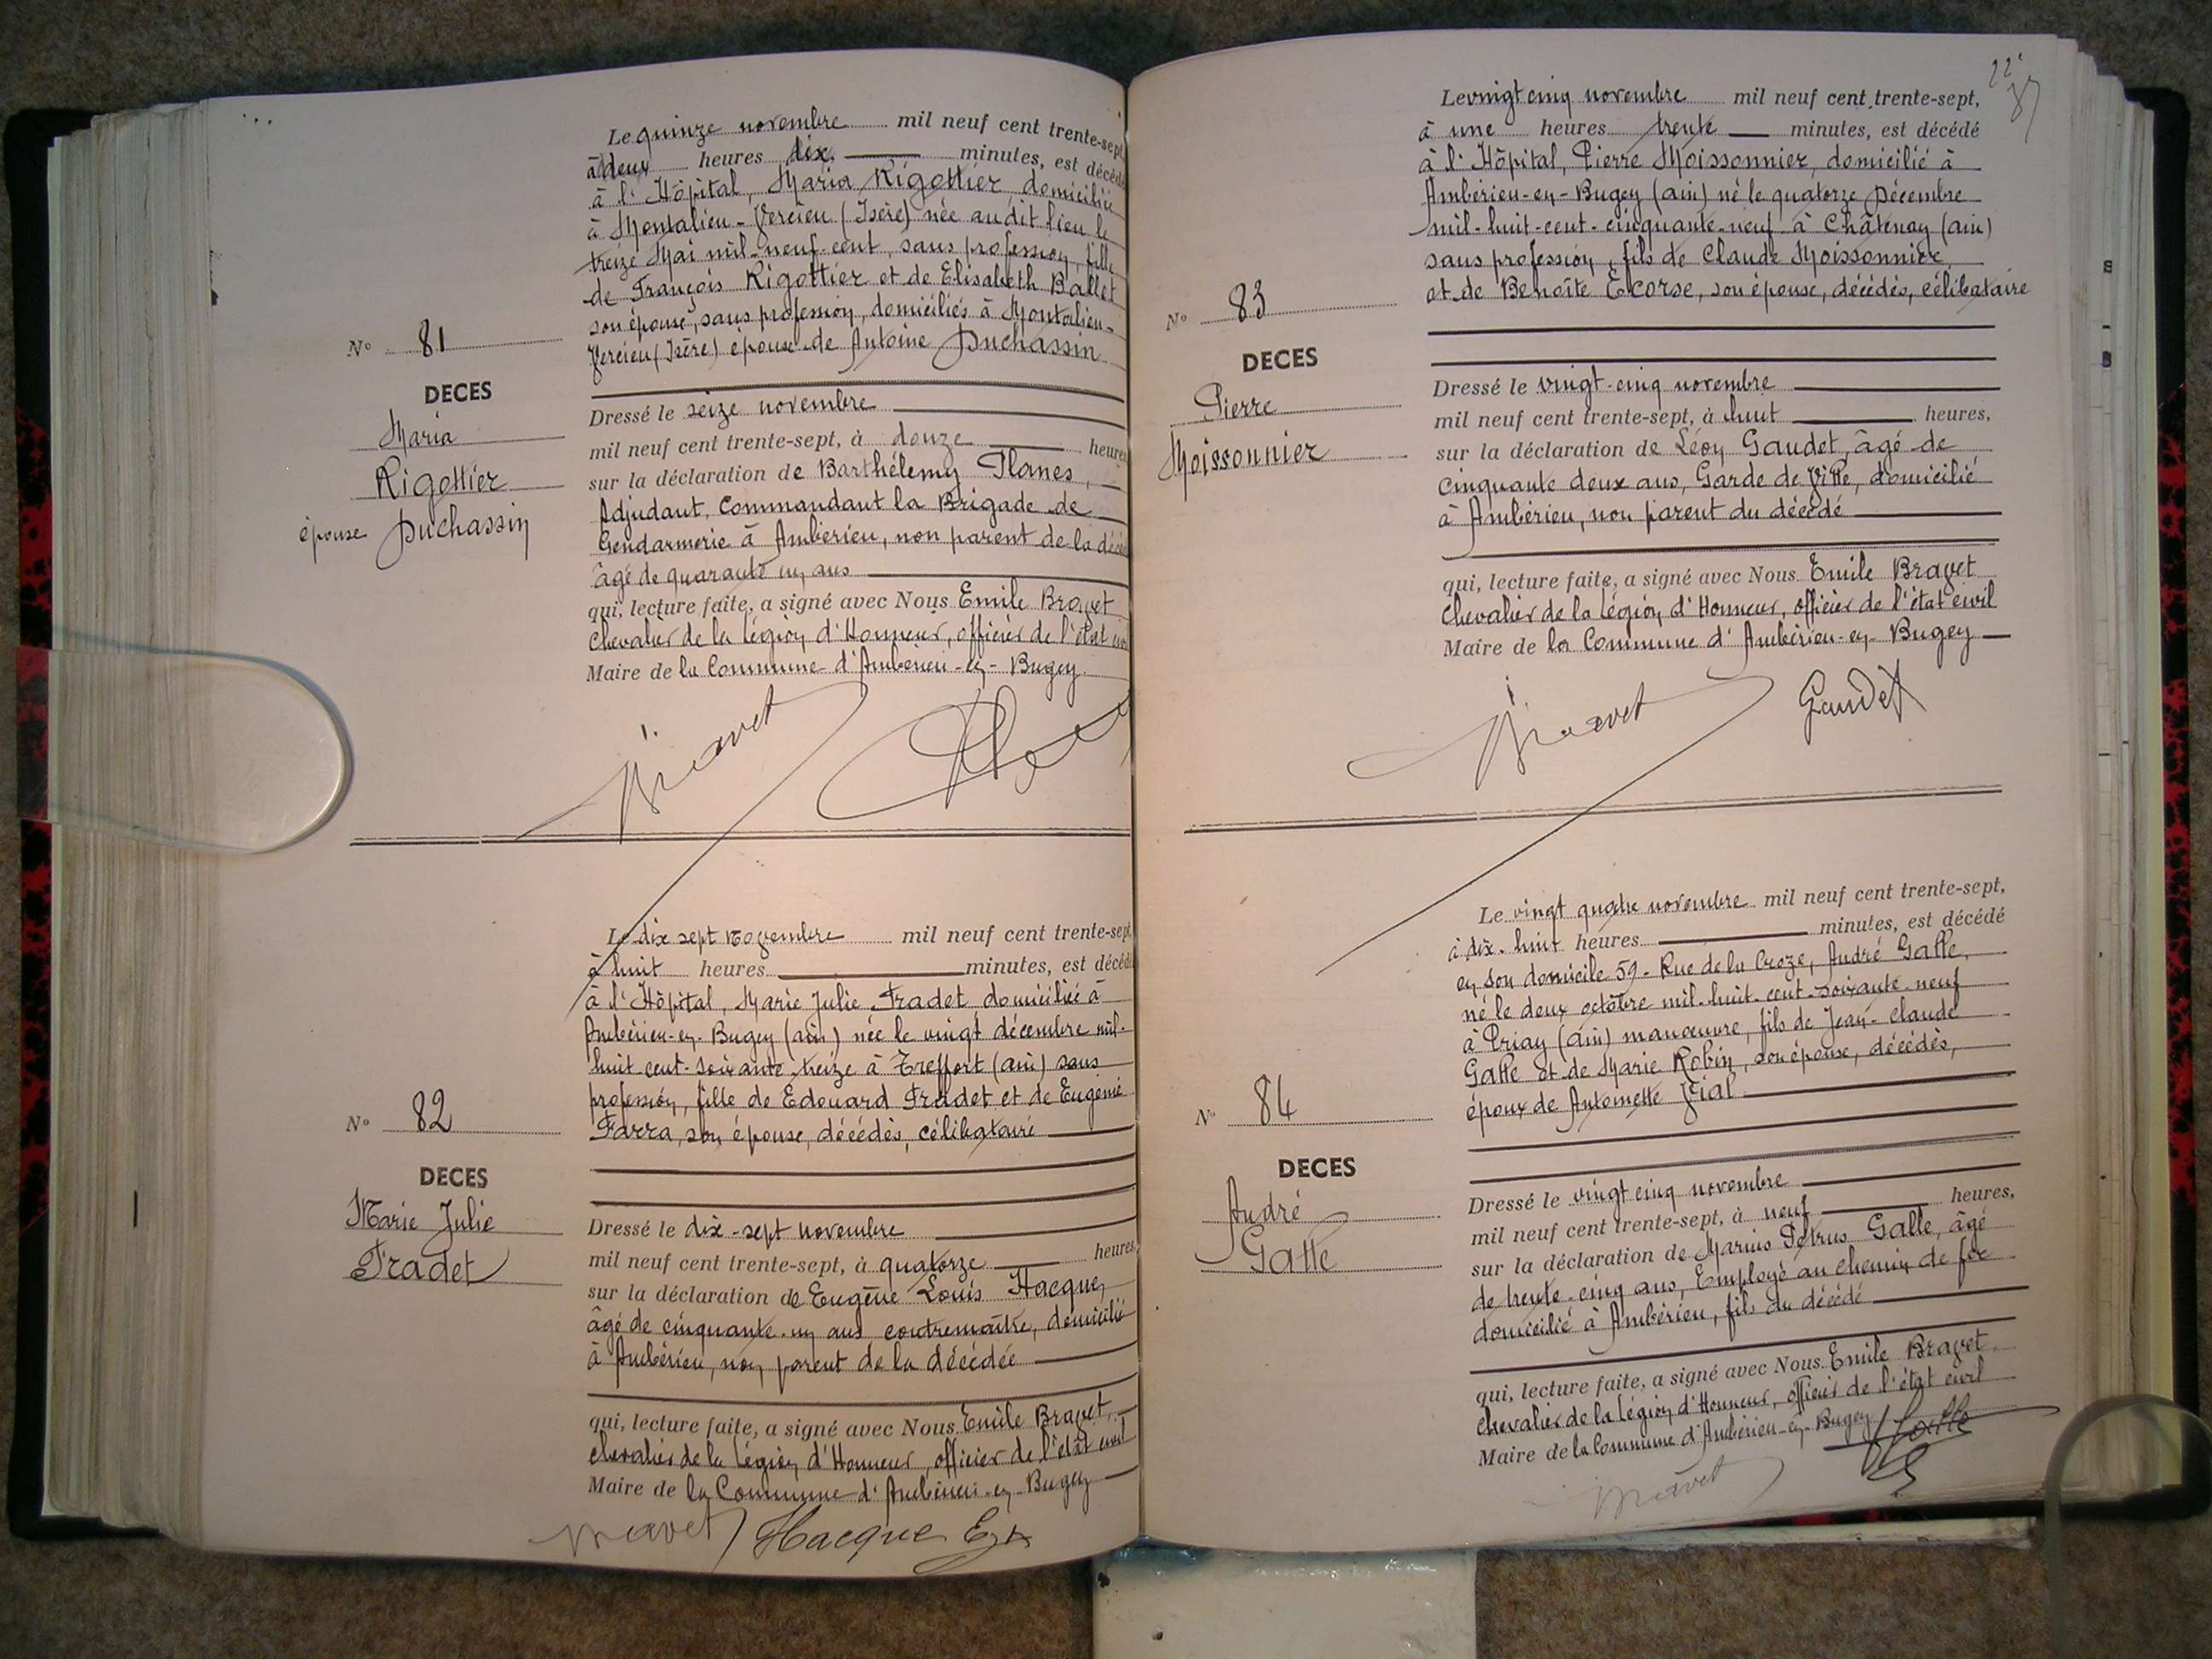 Le quinze novembre mil neuf cent trente-sept,
à deux heures dix minutes, est décédée
à l'Hôpital, Maria Rigottier domiciliée
à Montalieu-Vercieu (Isère) née audit lieu le
treize Mai mil-neuf-cent, sans profession, fille
de François Rigottier et de Elisabeth Ballet
son épouse, sans profession, domiciliés à Montalieu-
Vercieu (Isère) épouse de Antoine Duchassin
N° 81
DECES
Maria
Rigottier
épouse Duchassin
Dressé le seize novembre
mil neuf cent trente-sept, à douze heures
sur la déclaration de Barthélemy Planes,
Adjudant, Commandant la Brigade de
Gendarmerie à Ambérieu, non parent de la
âgé de quarante un ans
qui, lecture faite, a signé avec Nous Emile Bravet
Chevalier de la Légion d'Honneur, officier de l'état
Maire de la Commune d'Ambérieu-en-Bugey
Bravet
Le dix sept novembre mil neuf cent trente-sept,
à huit heures minutes, est décédée
à l'Hôpital, Marie Julie Tradet, domiciliée à
Ambérieu-en-Bugey (ain) née le vingt décembre mil-
huit-cent-soixante-treize à Treffort (ain) sans
profession, fille de Edouard Tradet et de Eugénie
Farra, son épouse, décédés, célibataire
N° 82
DECES
Marie Julie
Tradet
Dressé le dix-sept novembre
mil neuf cent trente-sept, à quatorze heures,
sur la déclaration de Eugène Louis Hacque,
âgé de cinquante-un ans contremaître, domicilié
à Ambérieu, non parent de la décédée
qui, lecture faite, a signé avec Nous Emile Bravet,
chevalier de la Légion d'Honneur, officier de l'état civil
Maire de la Commune d'Ambérieu-en-Bugey
Bravet Hacque
87
Le vingt cinq novembre mil neuf cent trente-sept,
à une heures trente minutes, est décédé
à l'Hôpital, Pierre Moissonnier, domicilié à
Ambérieu-en-Bugey (ain) né le quatorze Décembre
mil-huit-cent-cinquante-neuf à Châtenay (ain)
sans profession, fils de Claude Moissonnier,
et de Benoîte Ecorse, son épouse, décédés, célibataire
N° 83
DECES
Pierre
Moissonnier
Dressé le vingt-cinq novembre
mil neuf cent trente-sept, à huit heures,
sur la déclaration de Léon Gaudet, âgé de
cinquante deux ans, Garde de Ville, domicilié
à Ambérieu, non parent du décédé
qui, lecture faite, a signé avec Nous Emile Bravet
Chevalier de la Légion d'Honneur, officier de l'état civil
Maire de la Commune d'Ambérieu-en-Bugey
Bravet Gaudet
Le vingt quatre novembre mil neuf cent trente-sept,
à dix-huit heures minutes, est décédé
en son domicile 59-Rue de la Croze, André Gatte,
né le deux octobre mil-huit-cent-soixante-neuf
à Priay (ain) manoeuvre, fils de Jean-Claude
Gatte et de Marie Robin, son épouse, décédés,
époux de Antoinette Vial
N° 84
DECES
André
Gatte
Dressé le vingt cinq novembre
mil neuf cent trente-sept, à neuf heures,
sur la déclaration de Marius Petrus Gatte, âgé
de trente-cinq ans, Employé au chemin de fer
domicilié à Ambérieu, fils du décédé
qui, lecture faite, a signé avec Nous Emile Bravet,
chevalier de la Légion d'Honneur, officier de l'état civil
Maire de la Commune d'Ambérieu-en-Bugey
Gatte
Bravet